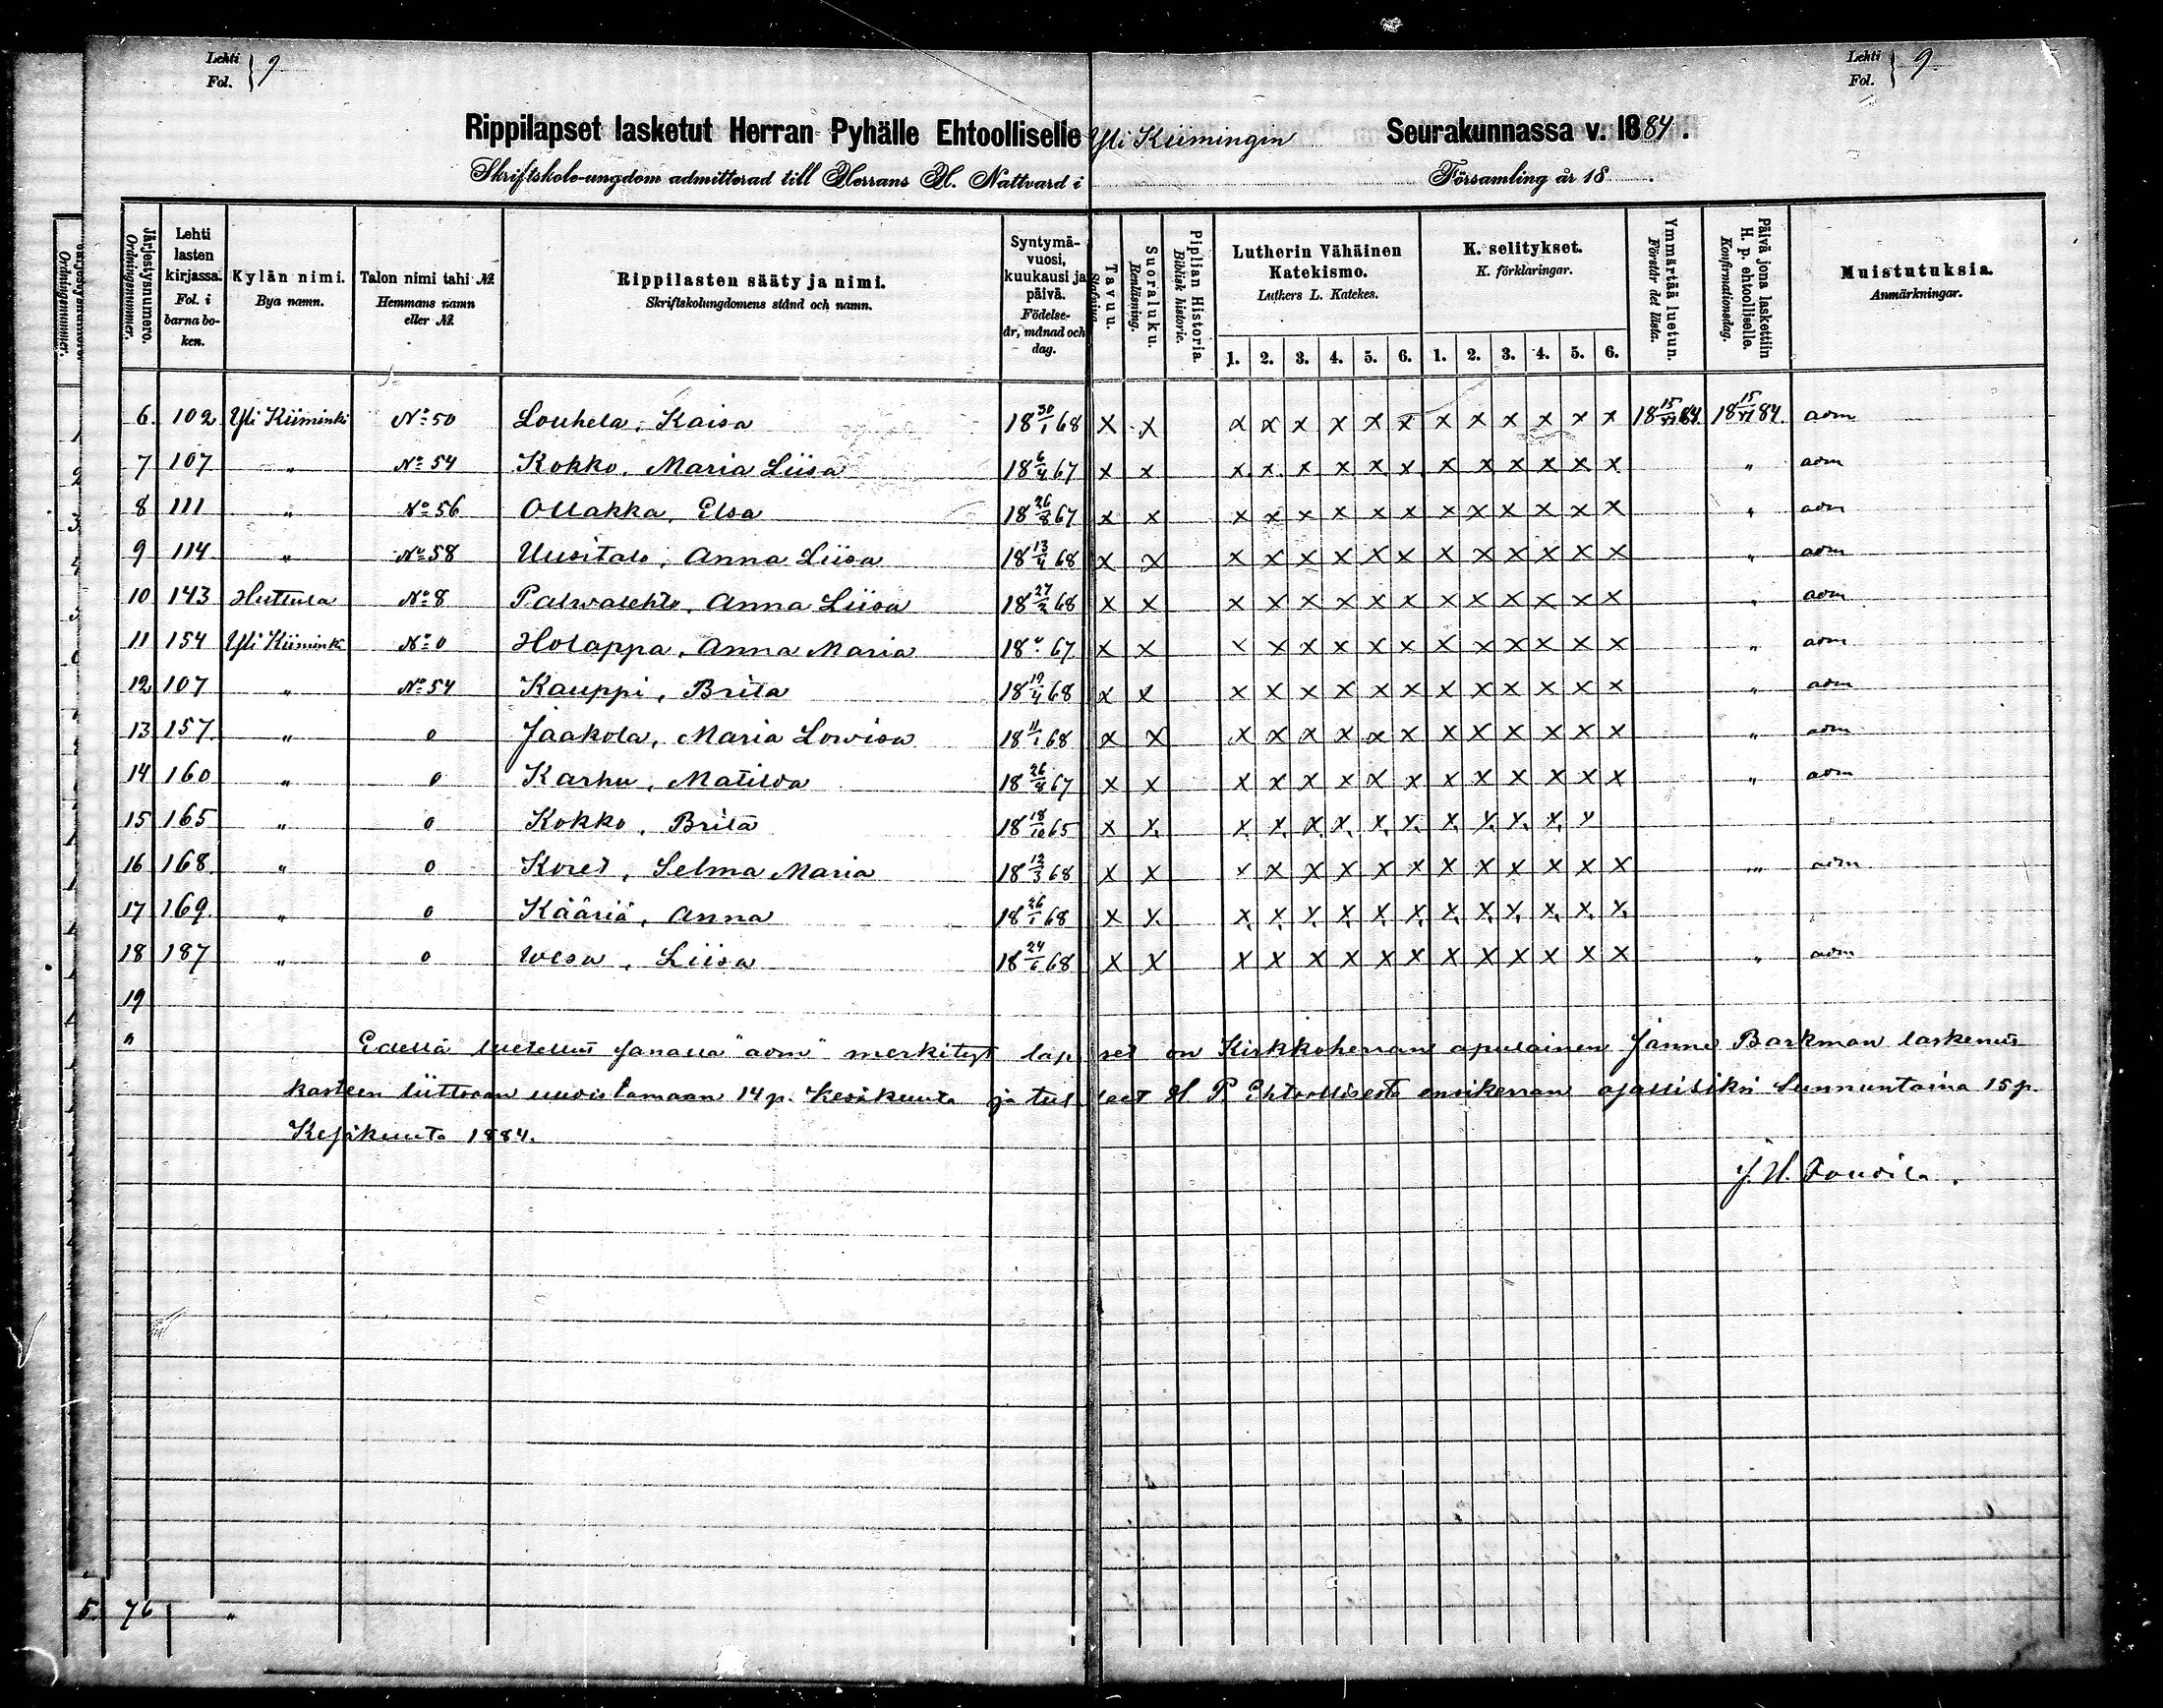 Lehti Fol. } 9
Lehti Fol. } 9
Rippilapset lasketut Herran Pyhälle Ehtoolliselle Yli Kiimingin Seurakunnassa v. 1884.
Skriftskole-ungdom admitterad till Herrans H. Nattvard i Församling år 18 .
Järjestysnumero. Ordningsnummer.
Lehti lasten kirjassa. Fol. i barnaboken.
Kylän nimi. Bya namn.
Talon nimi tahi №. Hemmans namn eller №.
Rippilasten sääty ja nimi. Skriftskolungdomens stånd och namn.
Syntymävuosi, kuukausi ja päivä. Födelseår, månad och dag.
Tavuu. Stafning.
Suoraluku. Renläsning.
Piplian Historia. Biblisk historie.
Lutherin Vähäinen Katekismo. Luthers L. Katekes.
K. selitykset. K. förklaringar.
Ymmärtää luetun. Förstår det lästa.
Päivä jona laskettiin H. p. ehtoolliselle. Konfirmationsdag.
Muistutuksia. Anmärkningar.
1. 2. 3. 4. 5. 6. 1. 2. 3. 4. 5. 6.
6. 102 Yli Kiiminki No 50 Louhela, Kaisa 18 30/1 68 x x x x x x x x x x x x x x 18 15/VI 84. 18 15/VI 84. adm
7 107 " No 54 Kokko, Maria Liisa 18 6/4 67 x x x x x x x x x x x x x x " adm
8 111 " No 56 Ollakka, Elsa 18 26/8 67 x x x x x x x x x x x x x x " adm
9 114 " No 58 Uusitalo, Anna Liisa 18 13/4 68 x x x x x x x x x x x x x x " adm
10 143 Huttula No 8 Palwalehto, Anna Liisa 18 27/2 68 x x x x x x x x x x x x x x " adm
11 154 Yli Kiiminki No 0 Holappa, Anna Maria 18 67 x x x x x x x x x x x x x x " adm
12 107 " No 54 Kauppi, Brita 18 19/4 68 x x x x x x x x x x x x x x " adm
13 157 " 0 Jaakola, Maria Lowisa 18 11/1 68 x x x x x x x x x x x x x x " adm
14 160 " 0 Karhu, Matilda 18 26/4 67 x x x x x x x x x x x x x x " adm
15 165 " 0 Kokko, Brita 18 18/10 65 x x x x x x x x x x x x x
16 168 " 0 Koret, Selma Maria 18 12/3 68 x x x x x x x x x x x x x x " adm
17 169 " 0 Kääriä, Anna 18 26/1 68 x x x x x x x x x x x x x x
18 187 " 0 Wesa, Liisa 18 24/6 68 x x x x x x x x x x x x x x " adm
19
" Edellä luetellut sanalla "adm" merkityt lapset on Kirkkoherran apulainen Janne Barkman laskenut
kasteen liittoaan uudistamaan 14 p. Kesäkuuta ja tulleet H P. Ehtoollisesta ensikerran osallisiksi Sunnuntaina 15 p.
Kesäkuuta 1884.
5. 76 "